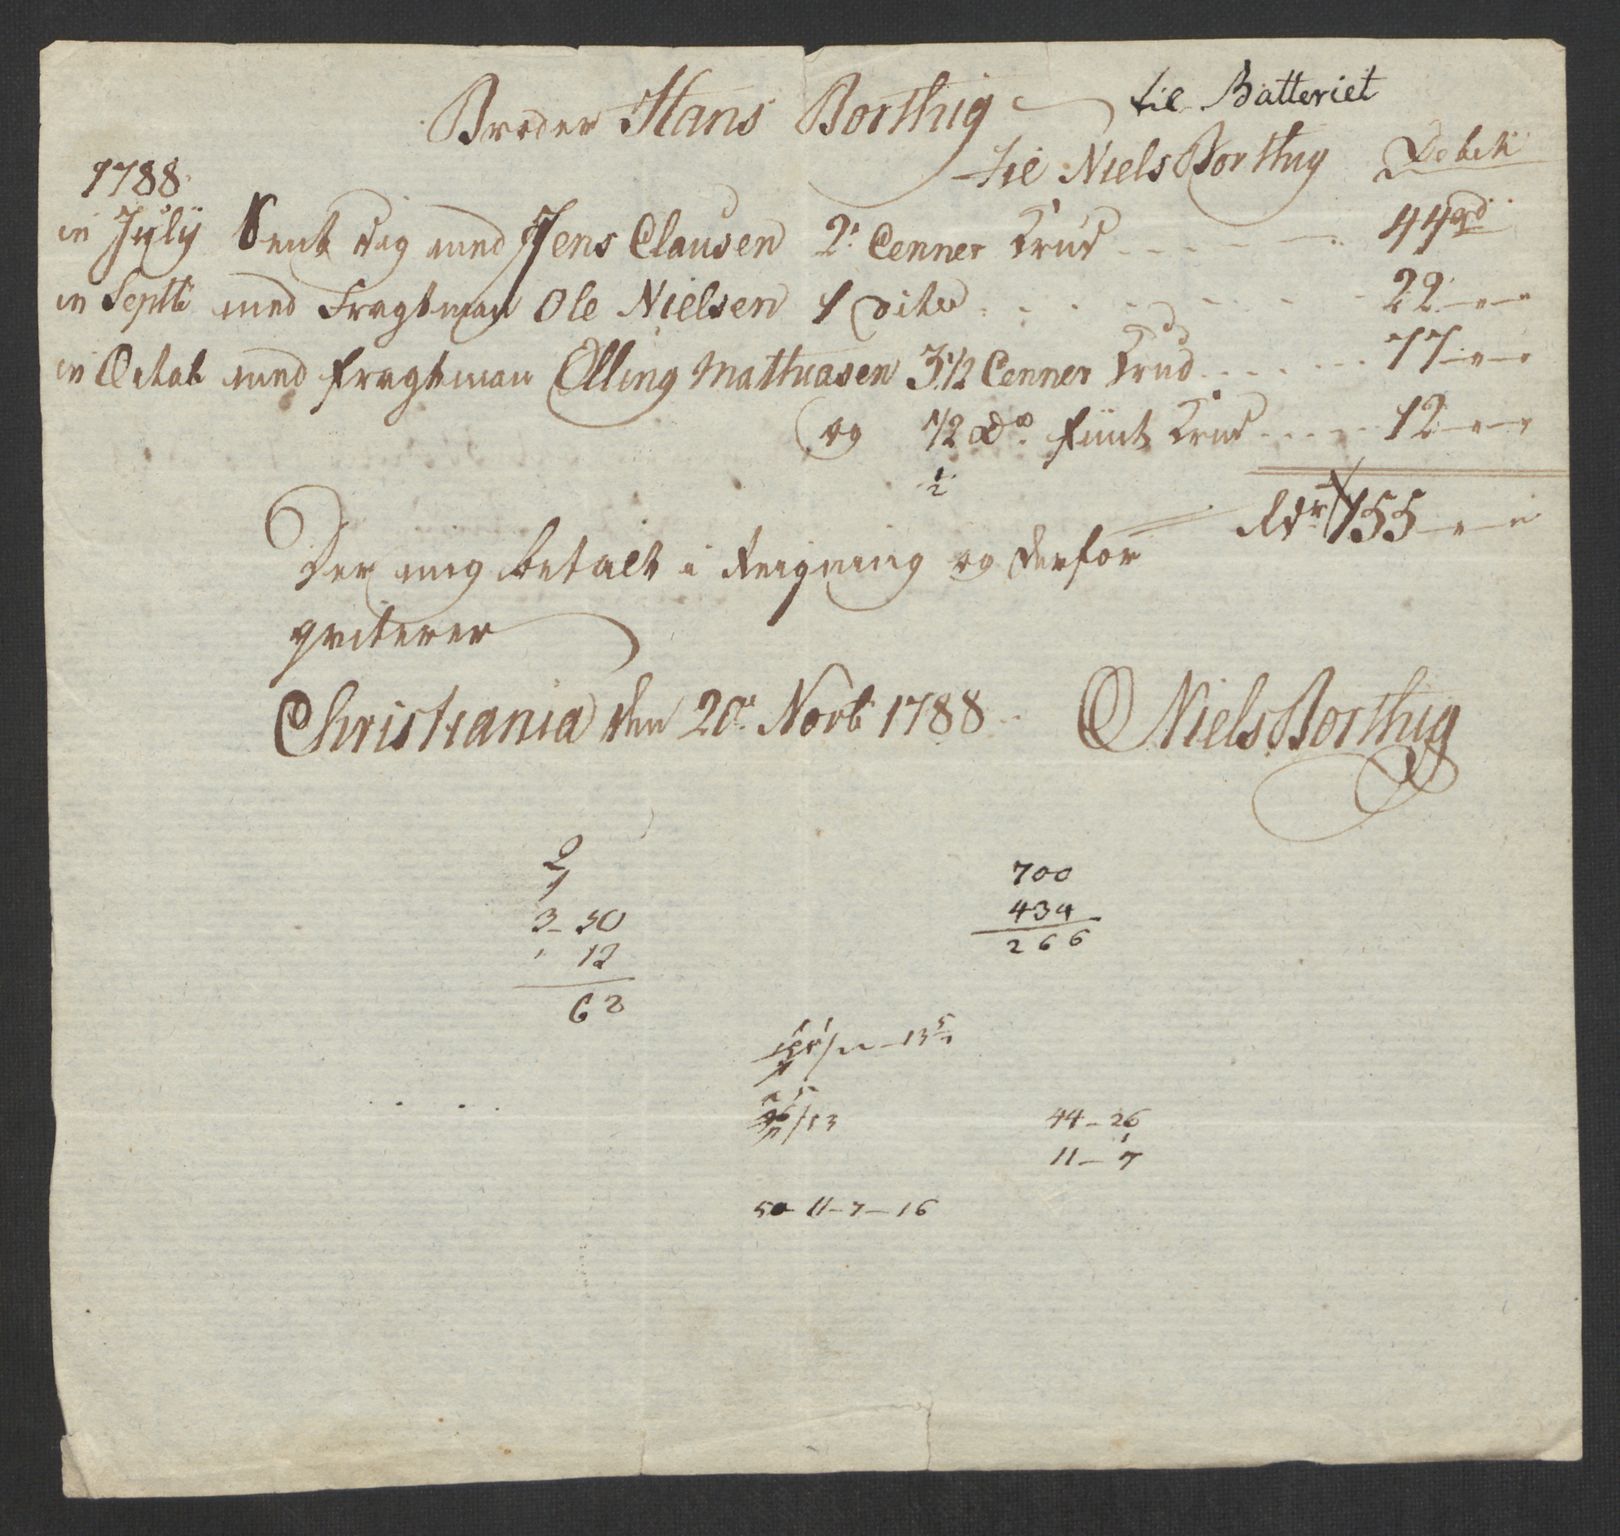 Broder Hans Borthig til Batteriet
til Niels Borthig Debet
1788
in July Sent dig med Jens Clausen 2 Cenner Krud 44 rd
in Septb med Fragtman Ole Nielsen 1 dito 22 " "
in Octob med fragtman Elling Mathiasen 3 1/2 Cenner Krud 77 " "
og 1/2 Do fiint Krud 12 " "
1/2
Rdr 155 " "
Der mig betalt i Reigning og derfor
qviterer
Christiania den 20de Novb 1788 Niels Borthig
2
1
3 - 50
12
62
700
434
266
13
44 - 26
11 - 7
50 - 11 - 7 - 16